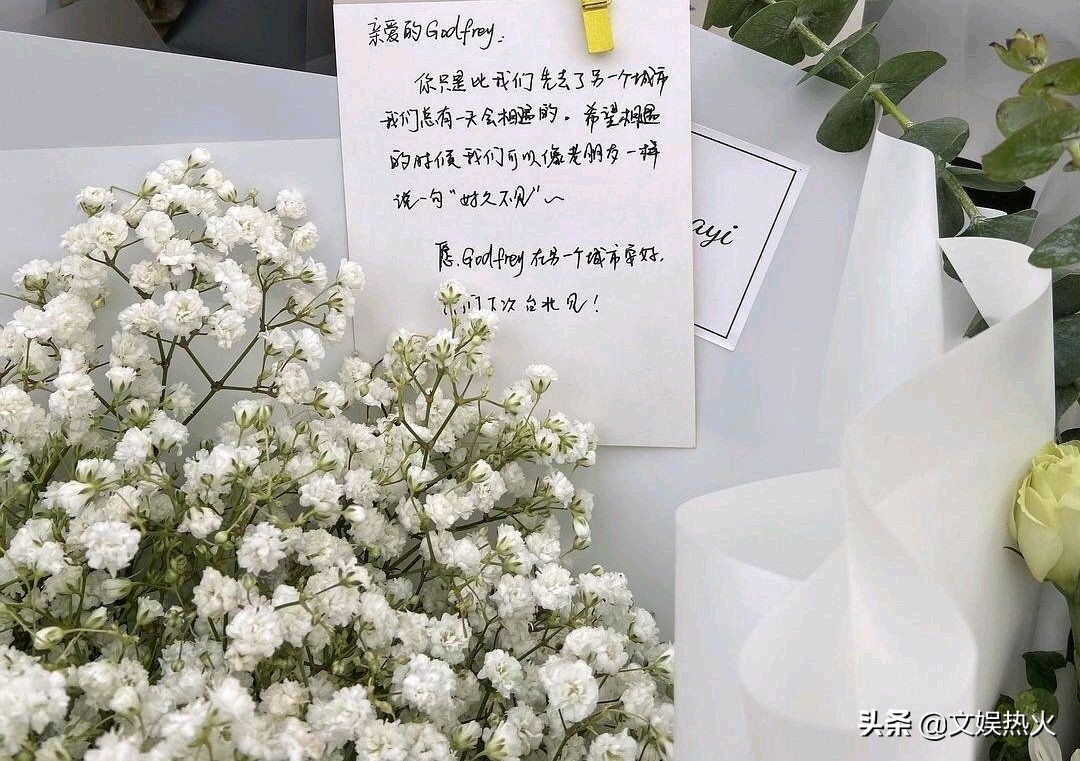 亲爱的Godfrey.
你只是比我们先去了另一个城市
我们总有一天会相遇的。希望相遇
的时候我们可以像老朋友一样
说一句"好久不见"~
愿.Godfrey在另一个城市安好.
我们下次台北见!
ayi
头条 @文娱热火